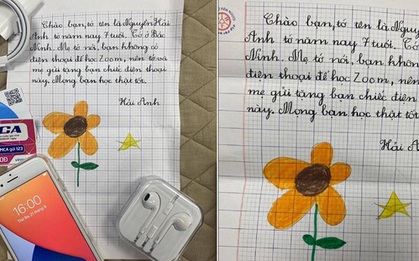 Chào bạn, tớ tên là Nguyễn Hải
Anh tớ năm nay 7 tuổi. Cớ ở Bắc
Ninh. Mẹ tớ nói, bạn không có
điện thoại để học Zoom, nên tớ và
mẹ gửi tặng bạn chiếc điện thoại
này. Mong bạn học thật tốt.
Hải Anh
16:00
Chào bạn, tớ tên là Nguyễn
Anh tớ năm nay 7 tuổi.
Ninh. Mẹ tớ nói, bạn không
điện thoại để học Zoom, nên
mẹ gửi tặng bạn chiếc điện
này. Mong bạn học thật tốt.
Hải